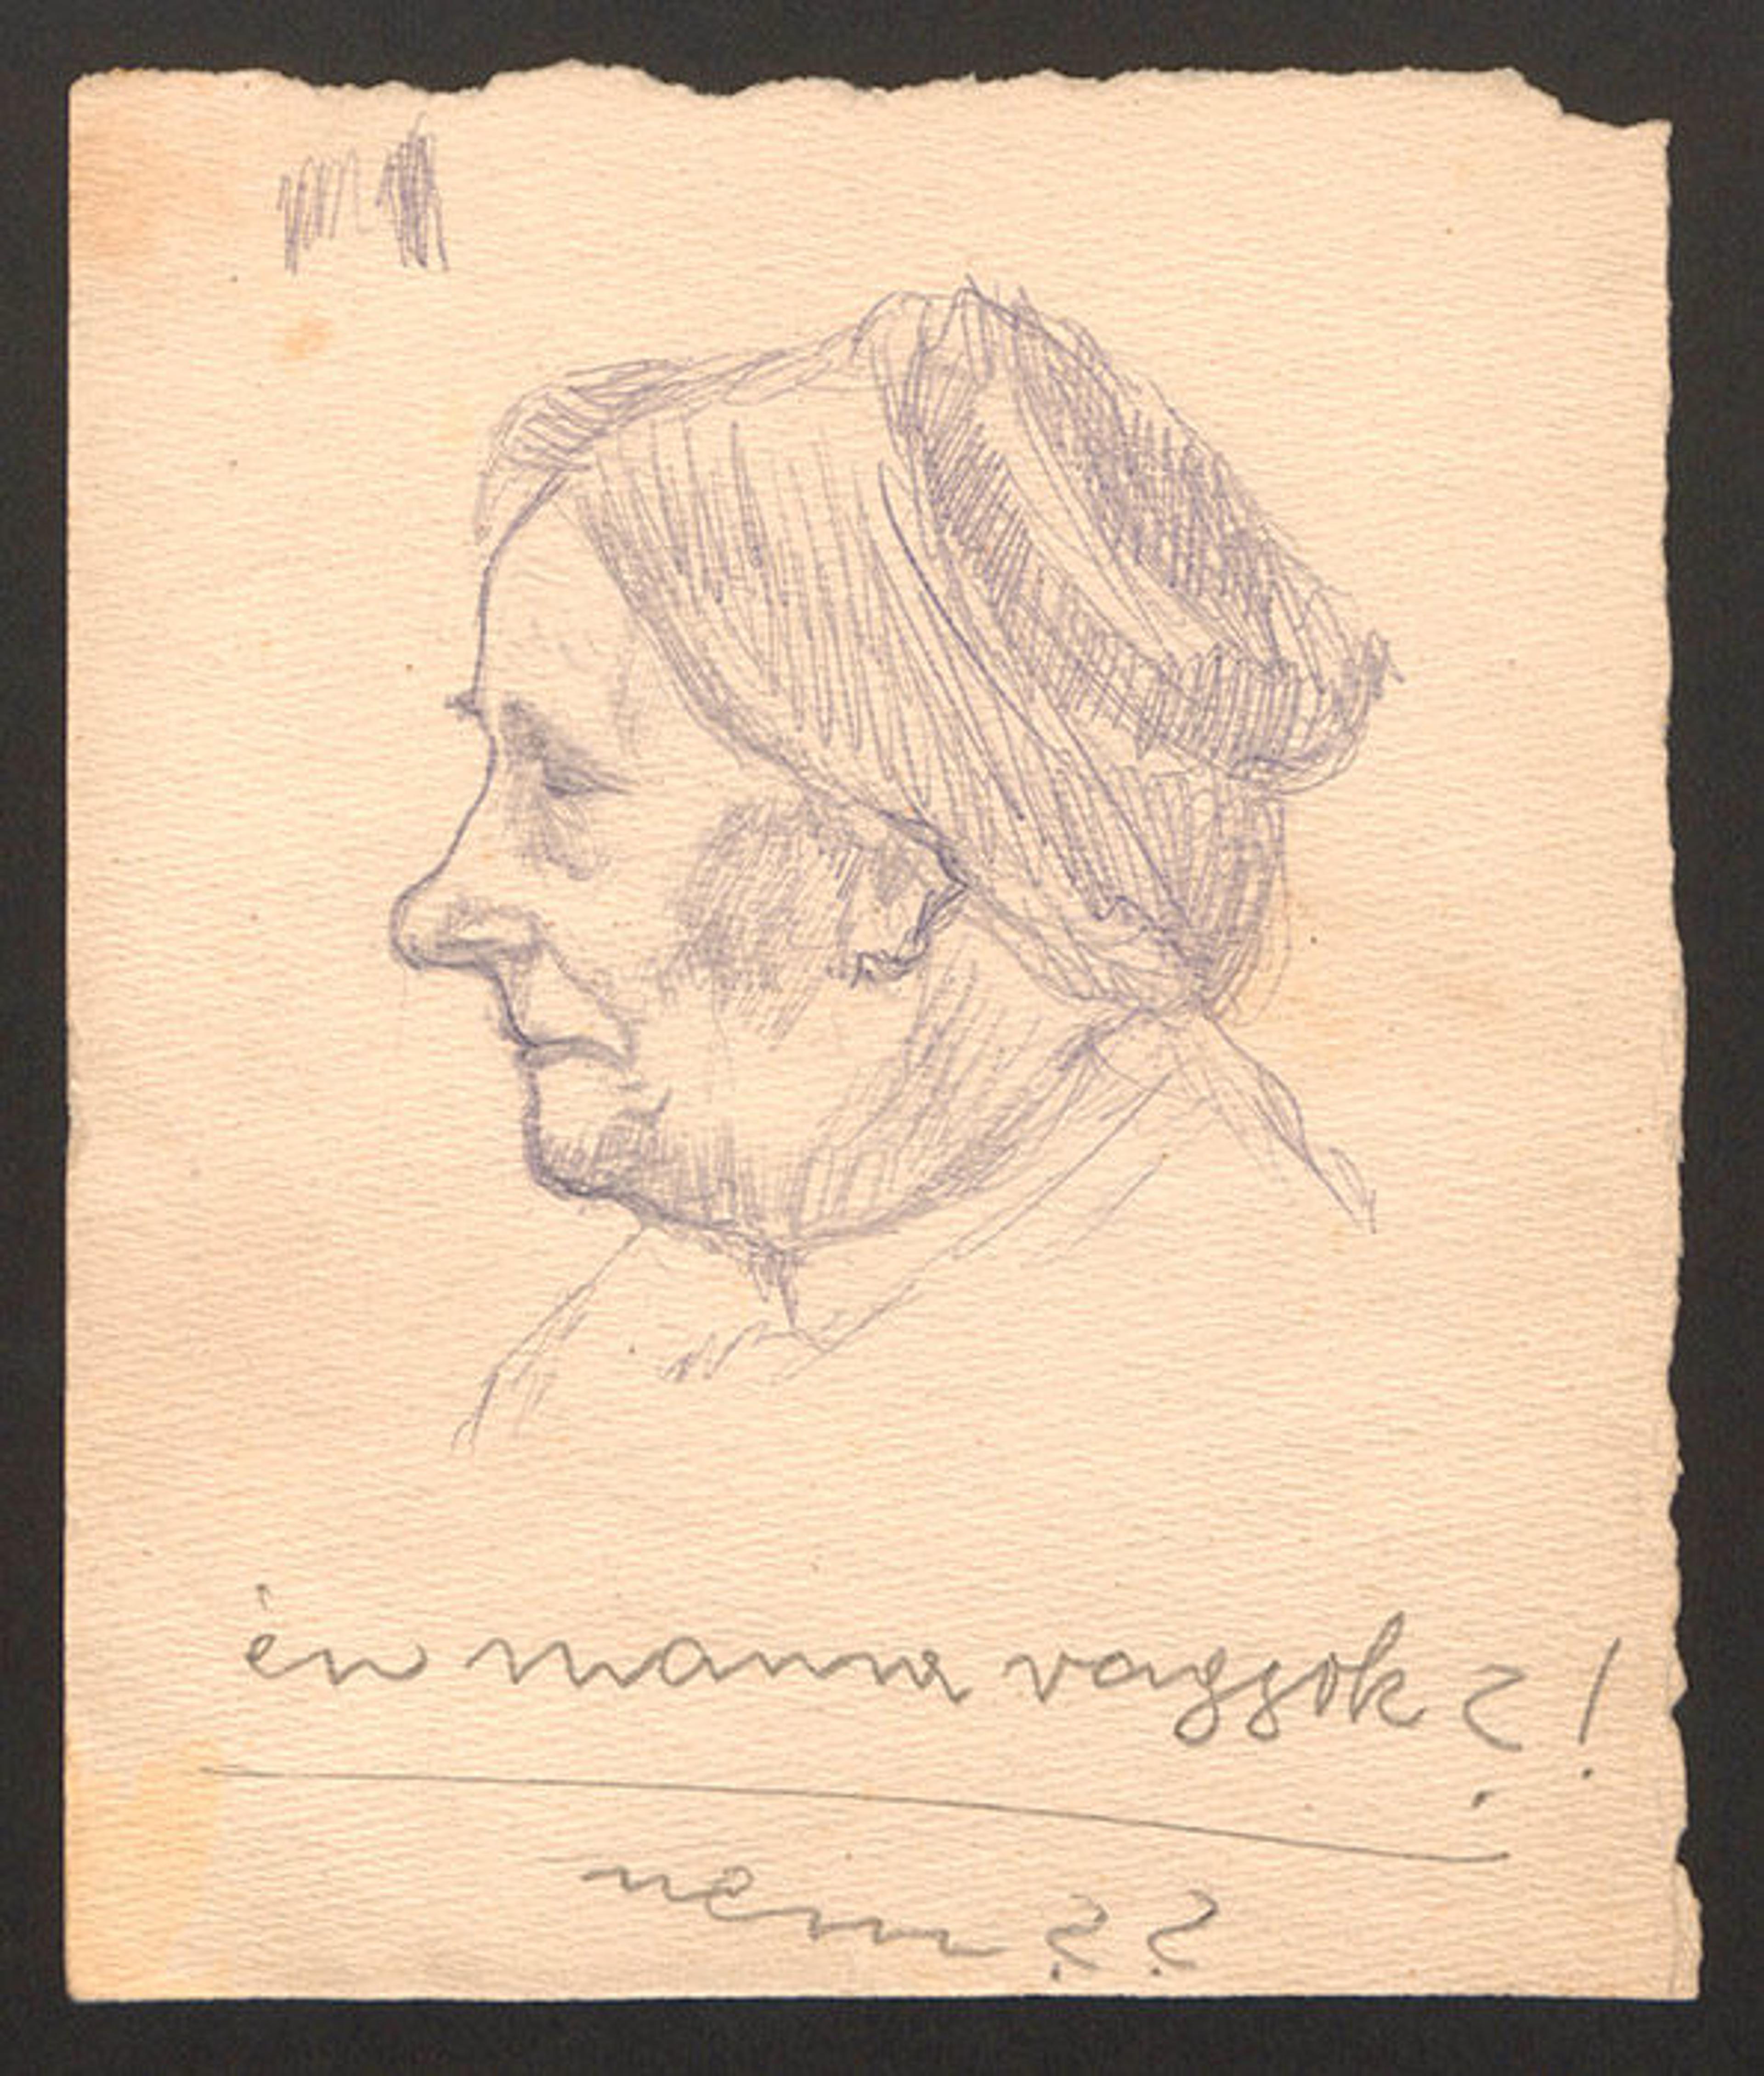 én mama vagyok?!
nem??